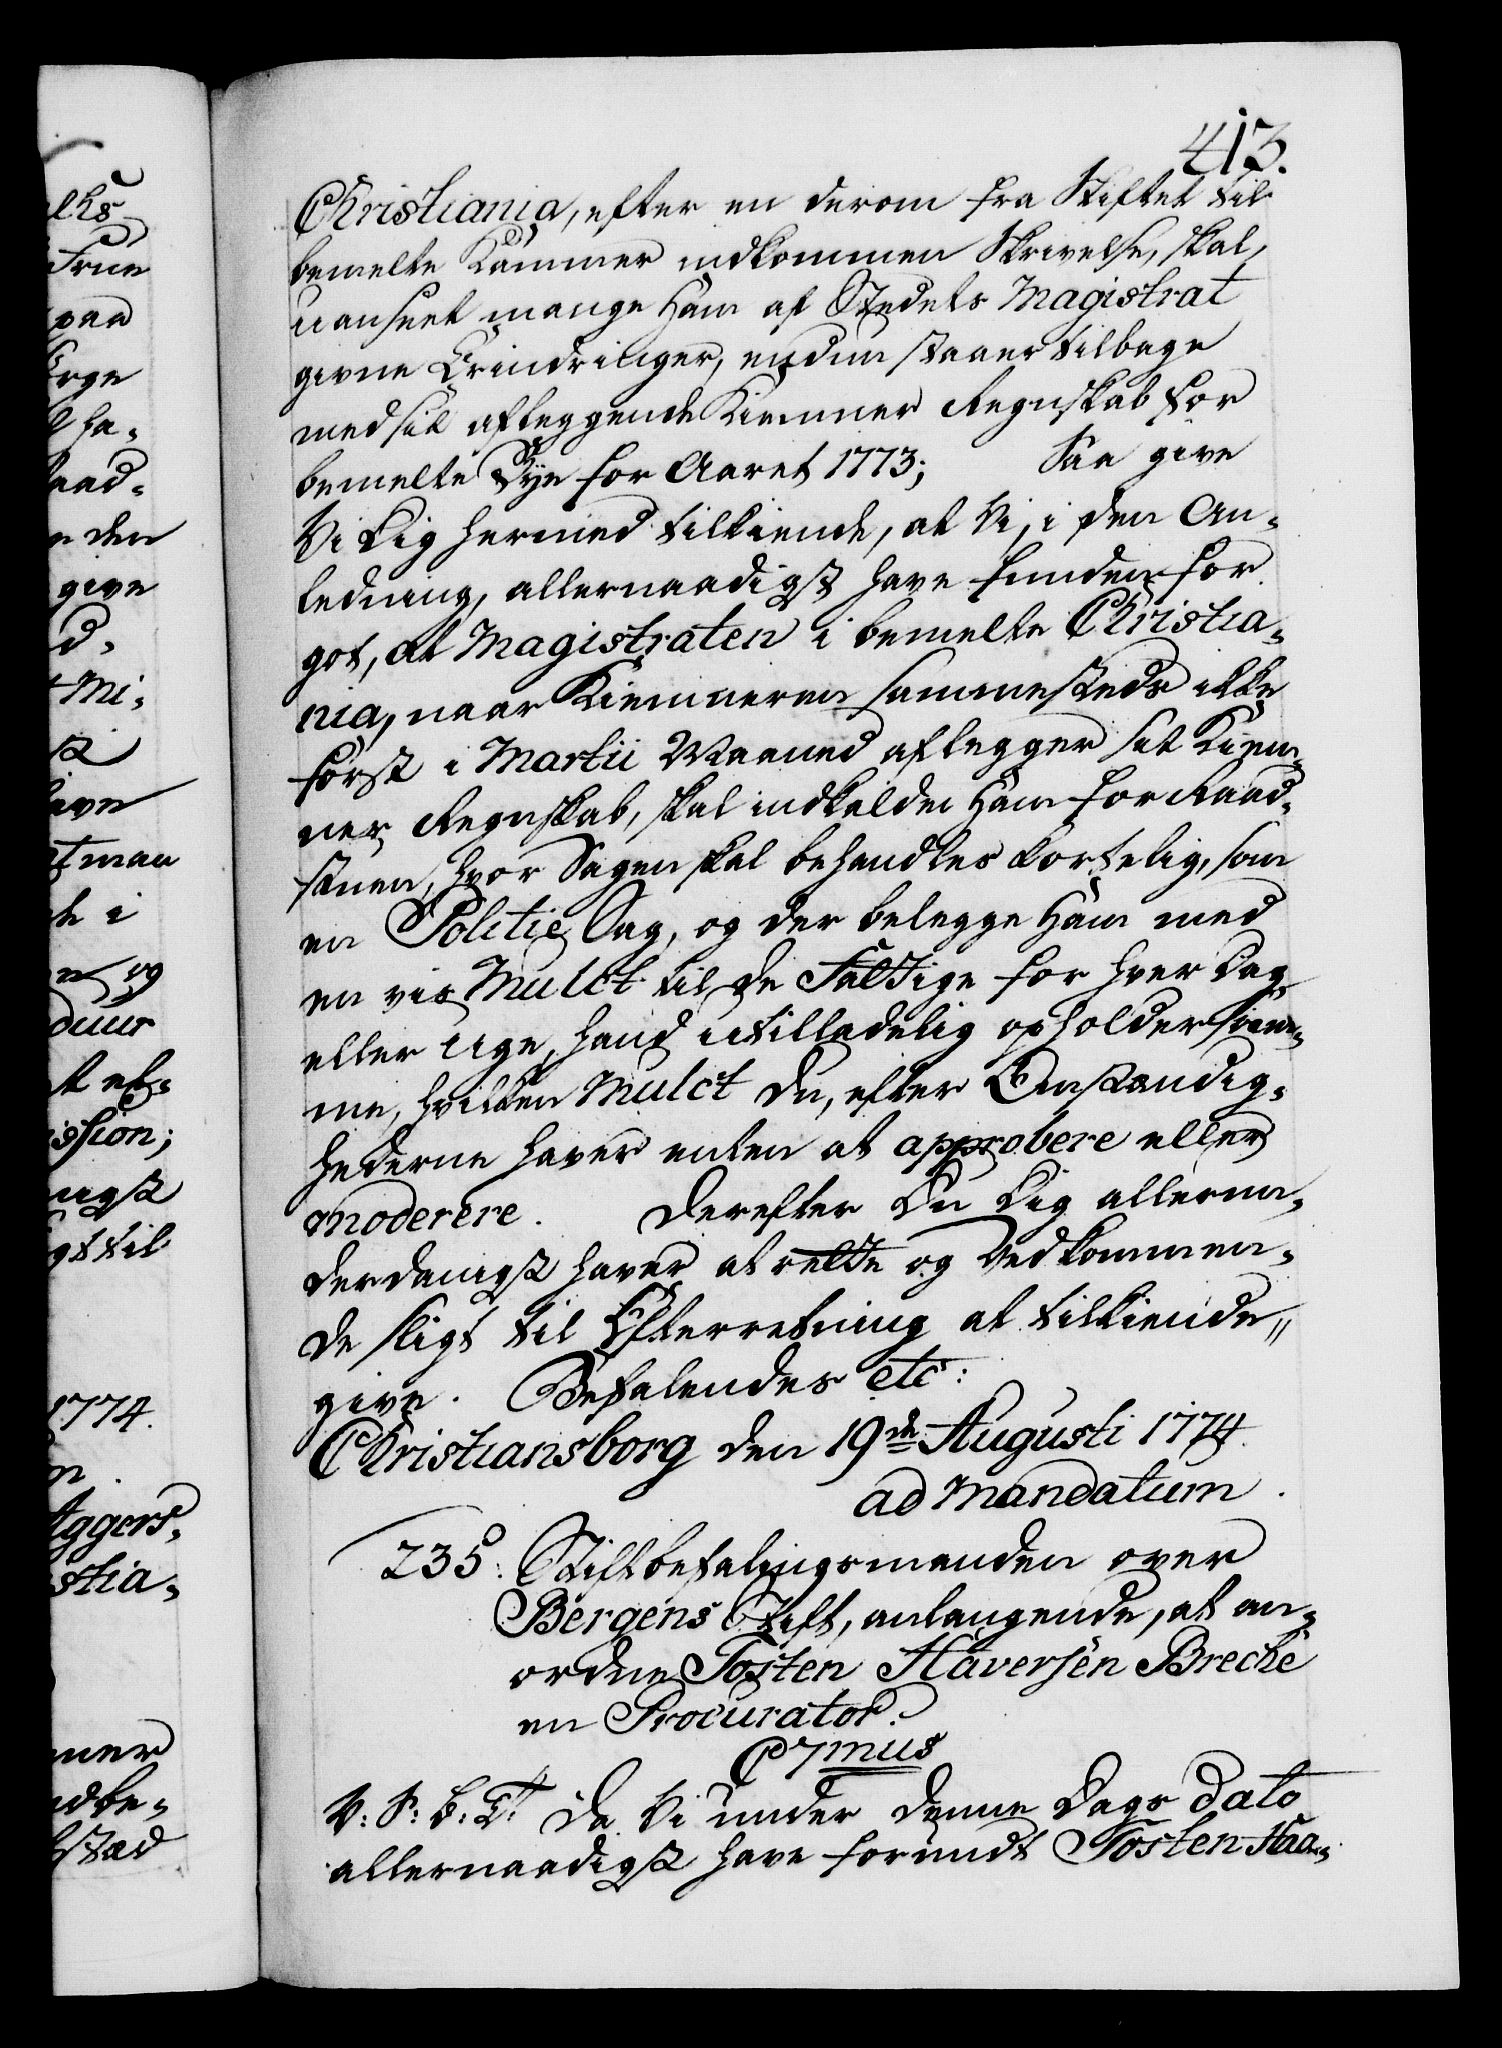 413.
Christiania, efter en derom fra Stiftet til
bemelte Kammer indkommen Skrivelse, skal,
uanseet mange Ham af Stedets Magistrat
givne Erindringer, endnu staaer tilbage
med sit aflæggende Kiemner Regnskab for
bemelte Bye for Aaret 1773; Saa give
Vi Dig hermed tilkiende, at Vi, i den An-
ledning, allernaadigst have funden for
got, at Magistraten i bemelte Christia-
nia, naar Kiemneren sammesteds ikke
først i Martii Maaned aflegger sit Kiem-
ner Regnskab, skal indkalde Ham for Raad-
stuen, hvor Sagen skal behandles kortelig, som
en Politie Sag, og der belegge Ham med
en vis Mulct til de Fattige for hver Dag
eller Uge, hand utilladelig opholder sam-
me, hvilken Mulct Du, efter Omstændig-
hederne haver enten at approbere eller
moderere. Derefter Du Dig allerun-
derdanigst haver at rette og Vedkommen-
de sligt til Efterretning at tilkiende-
give. Befalendes etc:
Christiansborg den 19de Augusti 1774.
ad Mandatum.
235: Stiftbefalingsmanden over
Bergens Stift, anlangende, at an-
ordne Tosten Haversen Breche
en Procurator.
C7mus
V: S: B: T: Da Vi under denne Dags Dato
allernaadigst have forundt Tosten Haa-
lks
Frue
paa
Erge
ha-
aad-
den
give
d,
Mi-
have
tman
i
og
duur
ission;
til
1774.
Aggers-
stia-
ner
dbe-
stæd